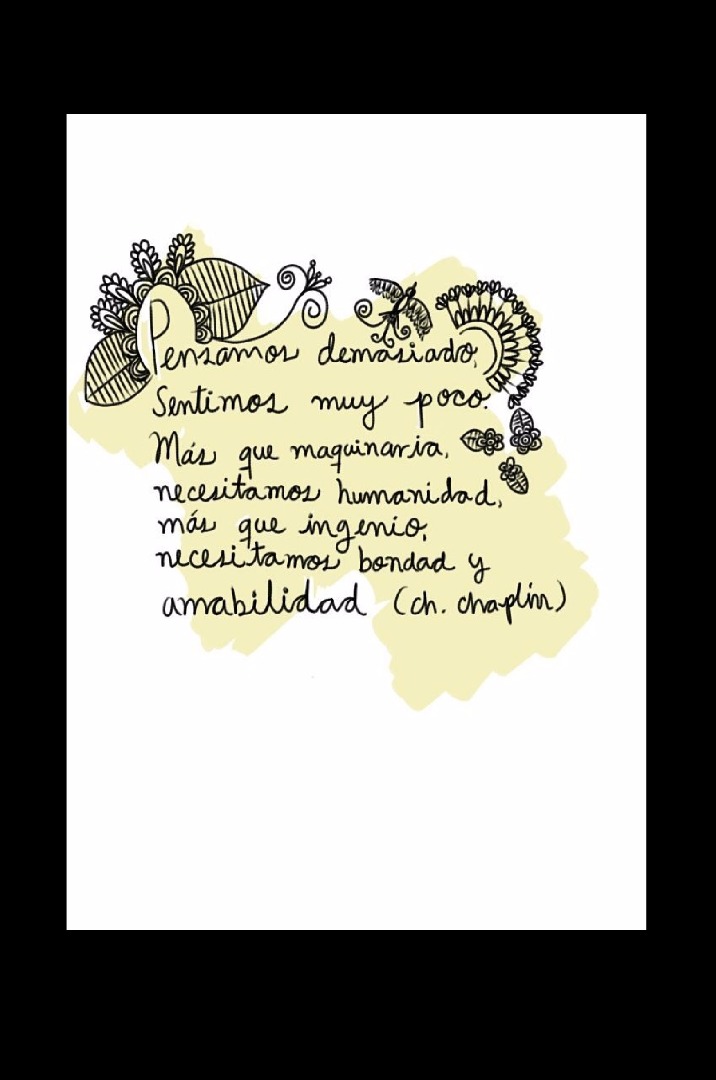 Pensamos demasiado,
Sentimos muy poco.
Más que maquinaria,
necesitamos humanidad,
más que ingenio,
necesitamos bondad y
amabilidad (ch. chaplin)